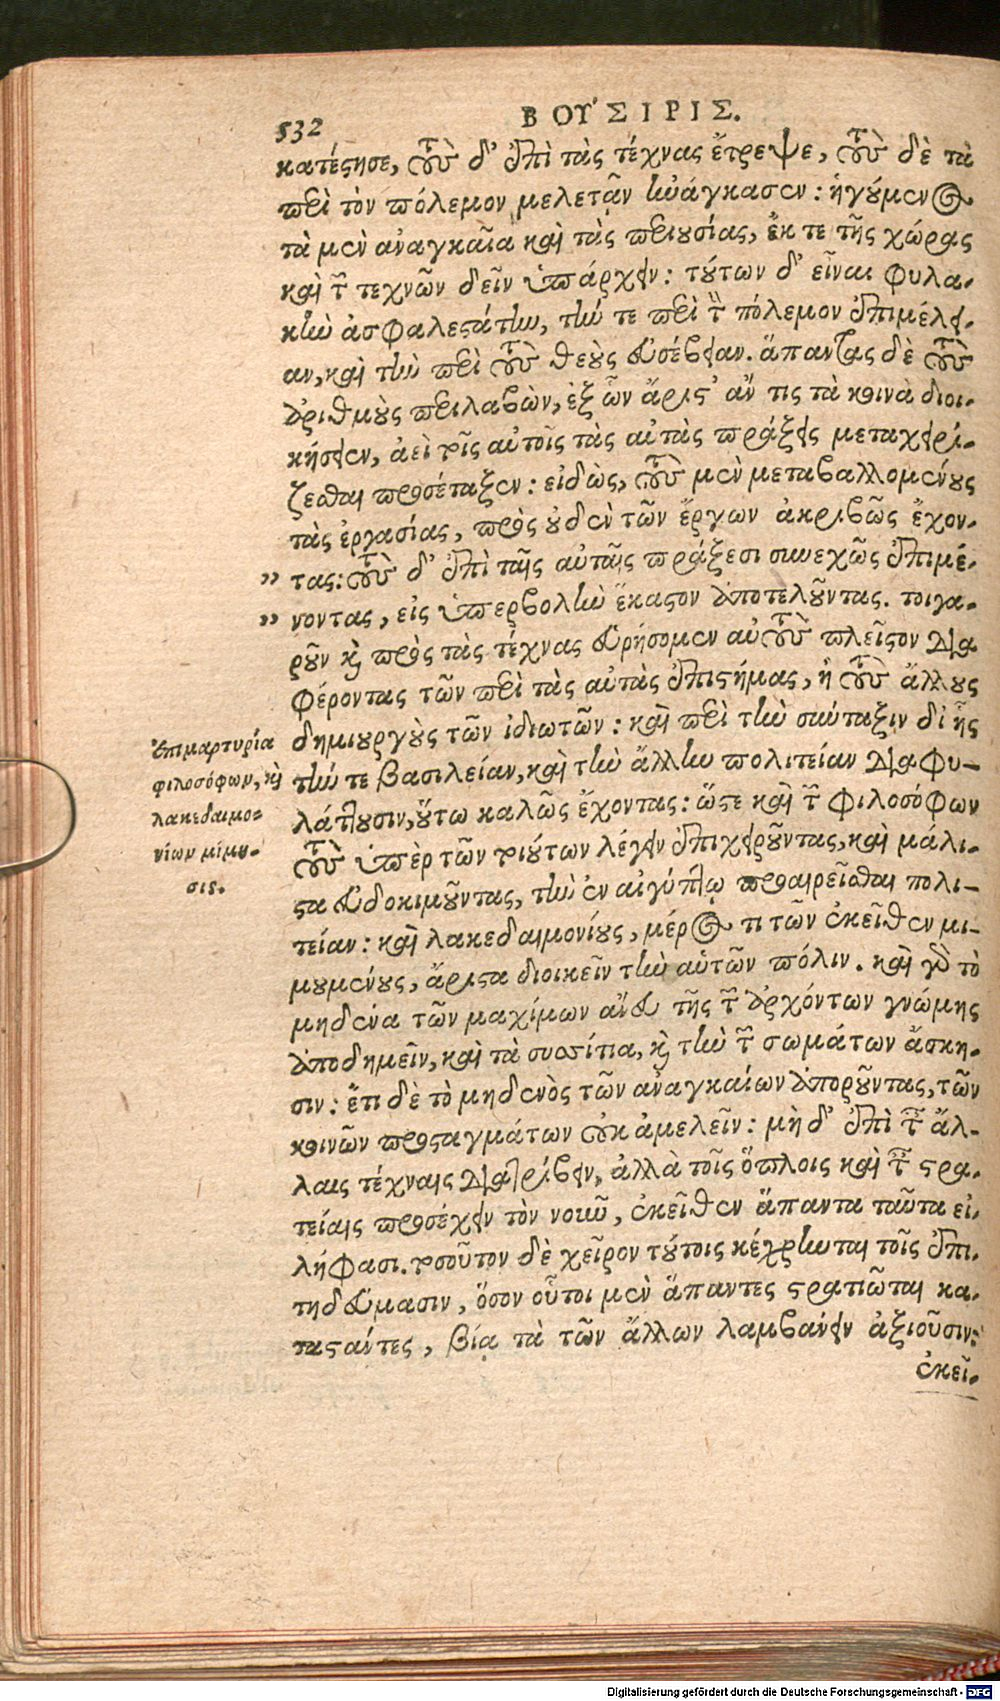 532
ΒΟΥ΄ΣΙΡΙΣ.
κατέστησε, τοὺς δ' ἐπὶ τὰς τέχνας ἔτρεψε, τοὺς δὲ τὰ
περὶ τὸν πόλεμον μελετᾷν ἠνάγκασεν: ἡγούμενος
τὰ μὲν ἀναγκαῖα καὶ τὰς περιουσίας, ἔκ τε τῆς χώρας
καὶ τῶν τεχνῶν δεῖν ὑπάρχειν: τούτων δ' εἶναι φυλα-
κὴν ἀσφαλεστάτην, τήν τε περὶ τὸν πόλεμον ἐπιμέλει-
αν, καὶ τὴν περὶ τοὺς θεοὺς εὐσέβειαν. ἅπαντας δὲ τοὺς
ἀριθμοὺς περιλαβὼν, ἐξ ὧν ἄριστ' ἄν τις τὰ κοινὰ διοι-
κήσειεν, ἀεὶ τοῖς αὐτοῖς τὰς αὐτὰς πράξεις μεταχειρί-
ζεσθαι προσέταξεν: εἰδὼς, τοὺς μὲν μεταβαλλομένους
τὰς ἐργασίας, πρὸς οὐδὲν τῶν ἔργων ἀκριβῶς ἔχον-
" τας: τοὺς δ' ἐπὶ ταῖς αὐταῖς πράξεσι συνεχῶς ἐπιμέ-
" νοντας, εἰς ὑπερβολὴν ἕκαστον ἀποτελοῦντας. τοιγα-
ροῦν καὶ πρὸς τὰς τέχνας εὑρήσομεν αὐτοὺς πλεῖστον δια
φέροντας τῶν περὶ τὰς αὐτὰς ἐπιστήμας, ἢ τοὺς ἄλλους
δημιουργοὺς τῶν ἰδιωτῶν: καὶ περὶ τὴν σύνταξιν δι' ἧς
τήν τε βασιλείαν, καὶ τὴν ἄλλην πολιτείαν διαφυ-
λάττουσιν, οὕτω καλῶς ἔχοντας: ὥστε καὶ τῶν φιλοσόφων
τοὺς ὑπὲρ τῶν τοιούτων λέγειν ἐπιχειροῦντας, καὶ μάλι-
στα εὐδοκιμοῦντας, τὴν ἐν αἰγύπτῳ προαιρεῖσθαι πολι-
τείαν: καὶ λακεδαιμονίους, μέρος τι τῶν ἐκεῖθεν μι-
μουμένους, ἄριστα διοικεῖν τὴν αὑτῶν πόλιν. καὶ γὰρ τὸ
μηδένα τῶν μαχίμων ἄνευ τῆς τῶν ἀρχόντων γνώμης
ἀποδημεῖν, καὶ τὰ συσσίτια, καὶ τὴν τῶν σωμάτων ἄσκη-
σιν: ἔτι δὲ τὸ μηδενὸς τῶν ἀναγκαίων ἀποροῦντας, τῶν
κοινῶν προσταγμάτων οὐκ ἀμελεῖν: μὴ δ' ἐπὶ ταῖς ἄλ-
λαις τέχναις διατρίβειν, ἀλλὰ τοῖς ὅπλοις καὶ ταῖς στρα-
τείαις προσέχειν τὸν νοῦν, ἐκεῖθεν ἅπαντα ταῦτα εἰ-
λήφασι. τοσοῦτον δὲ χεῖρον τούτοις κέχρηνται τοῖς ἐπι-
τηδεύμασιν, ὅσον οὗτοι μὲν ἅπαντες στρατιῶται κα-
ταστάντες, βίᾳ τὰ τῶν ἄλλων λαμβάνειν ἀξιοῦσιν:
ἐκεῖ-
ἐπιμαρτυρία
φιλοσόφων, καὶ
λακεδαιμο-
νίων μίμη-
σις.
Digitalisierung gefördert durch die Deutsche Forschungsgemeinschaft - DFG